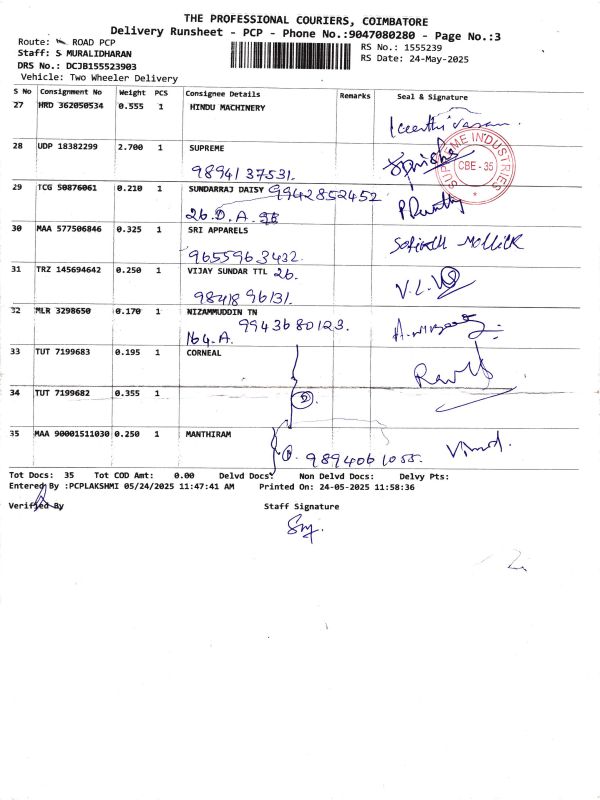 THE PROFESSIONAL COURIERS, COIMBATORE
Delivery Runsheet - PCP - Phone No.:9047080280 - Page No.:3
Route: ROAD PCP
RS No.: 1555239
Staff: S MURALIDHARAN
RS Date: 24-May-2025
DRS No.: DCJB155523903
Vehicle: Two Wheeler Delivery
S No Consignment No Weight PCS Consignee Details Remarks Seal & Signature
27 HRD 362050534 0.555 1 HINDU MACHINERY
28 UDP 18382299 2.700 1 SUPREME
9894137531.
SUPREME INDUSTRIES
CBE - 35
29 TCG 50876061 0.210 1 SUNDARRAJ DAISY 9942852452
26.D.A.
30 MAA 577506846 0.325 1 SRI APPARELS
9655963432.
31 TRZ 145694642 0.250 1 VIJAY SUNDAR TTL 26.
9841896131.
V.L.
32 MLR 3298650 0.170 1 NIZAMMUDDIN TN
9943680123.
164.A.
33 TUT 7199683 0.195 1 CORNEAL
34 TUT 7199682 0.355 1
35 MAA 90001511030 0.250 1 MANTHIRAM
9894061055.
Vinod.
Tot Docs: 35 Tot COD Amt: 0.00 Delvd Docs: Non Delvd Docs: Delvy Pts:
Entered By :PCPLAKSHMI 05/24/2025 11:47:41 AM Printed On: 24-05-2025 11:58:36
Verified By Staff Signature